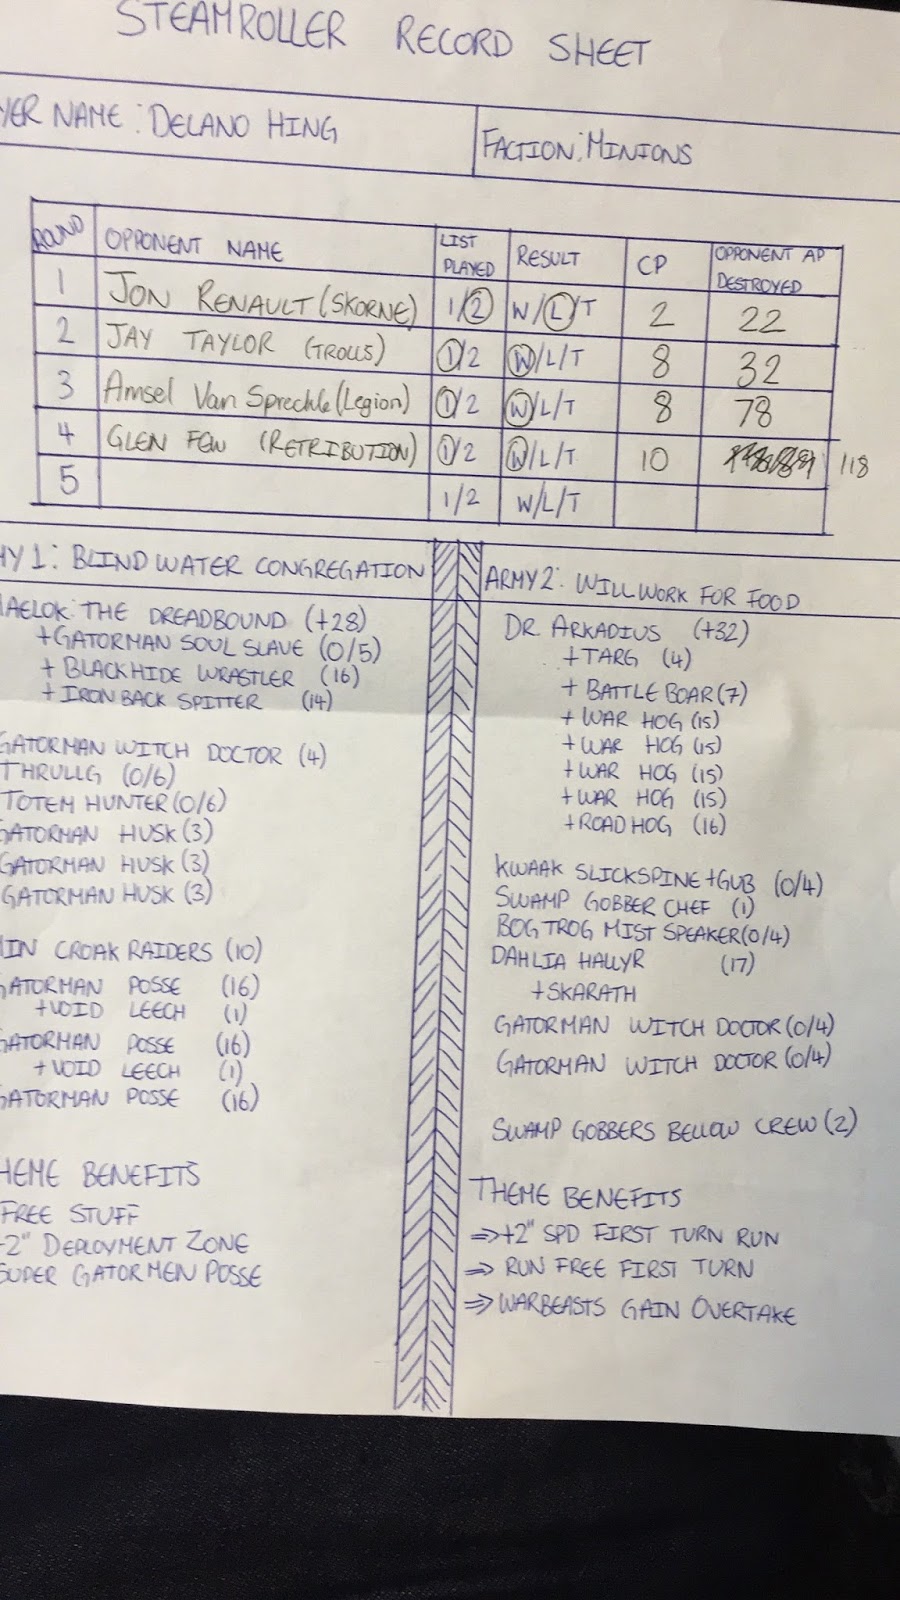 STEAMROLLER RECORD SHEET
YER NAME: DELANO HING
FACTION: MINIONS
ROUND OPPONENT NAME LIST PLAYED RESULT CP OPPONENT AP DESTROYED
1 JON RENAULT (SKORNE) 1/2 W/L/T 2 22
2 JAY TAYLOR (TROLLS) 1/2 W/L/T 8 32
3 Amsel Van Sprechle (Legion) 1/2 W/L/T 8 78
4 GLEN FEW (RETRIBUTION) 1/2 W/L/T 10 118
5 1/2 W/L/T
MY 1: BLINDWATER CONGREGATION
MAELOK THE DREADBOUND (+28)
+GATORMAN SOUL SLAVE (0/5)
+ BLACKHIDE WRASTLER (16)
+ IRON BACK SPITTER (14)
GATORMAN WITCH DOCTOR (4)
THRULLG (0/6)
TOTEM HUNTER (0/6)
GATORMAN HUSK (3)
GATORMAN HUSK (3)
GATORMAN HUSK (3)
MIN CROAK RAIDERS (10)
GATORMAN POSSE (16)
+VOID LEECH (1)
GATORMAN POSSE (16)
+VOID LEECH (1)
GATORMAN POSSE (16)
HEME BENEFITS
FREE STUFF
+2" DEPLOYMENT ZONE
SUPER GATORMEN POSSE
ARMY 2: WILL WORK FOR FOOD
DR. ARKADIUS (+32)
+TARG (4)
+ BATTLE BOAR (7)
+ WAR HOG (15)
+ WAR HOG (15)
+WAR HOG (15)
+WAR HOG (15)
+ROAD HOG (16)
KWAAK SLICKSPINE+GUB (0/4)
SWAMP GOBBER CHEF (1)
BOG TROG MIST SPEAKER (0/4)
DAHLIA HALLYR (17)
+SKARATH
GATORMAN WITCH DOCTOR (0/4)
GATORMAN WITCH DOCTOR (0/4)
SWAMP GOBBERS BELLOW CREW (2)
THEME BENEFITS
⇒+2" SPD FIRST TURN RUN
⇒ RUN FREE FIRST TURN
⇒ WARBEASTS GAIN OVERTAKE